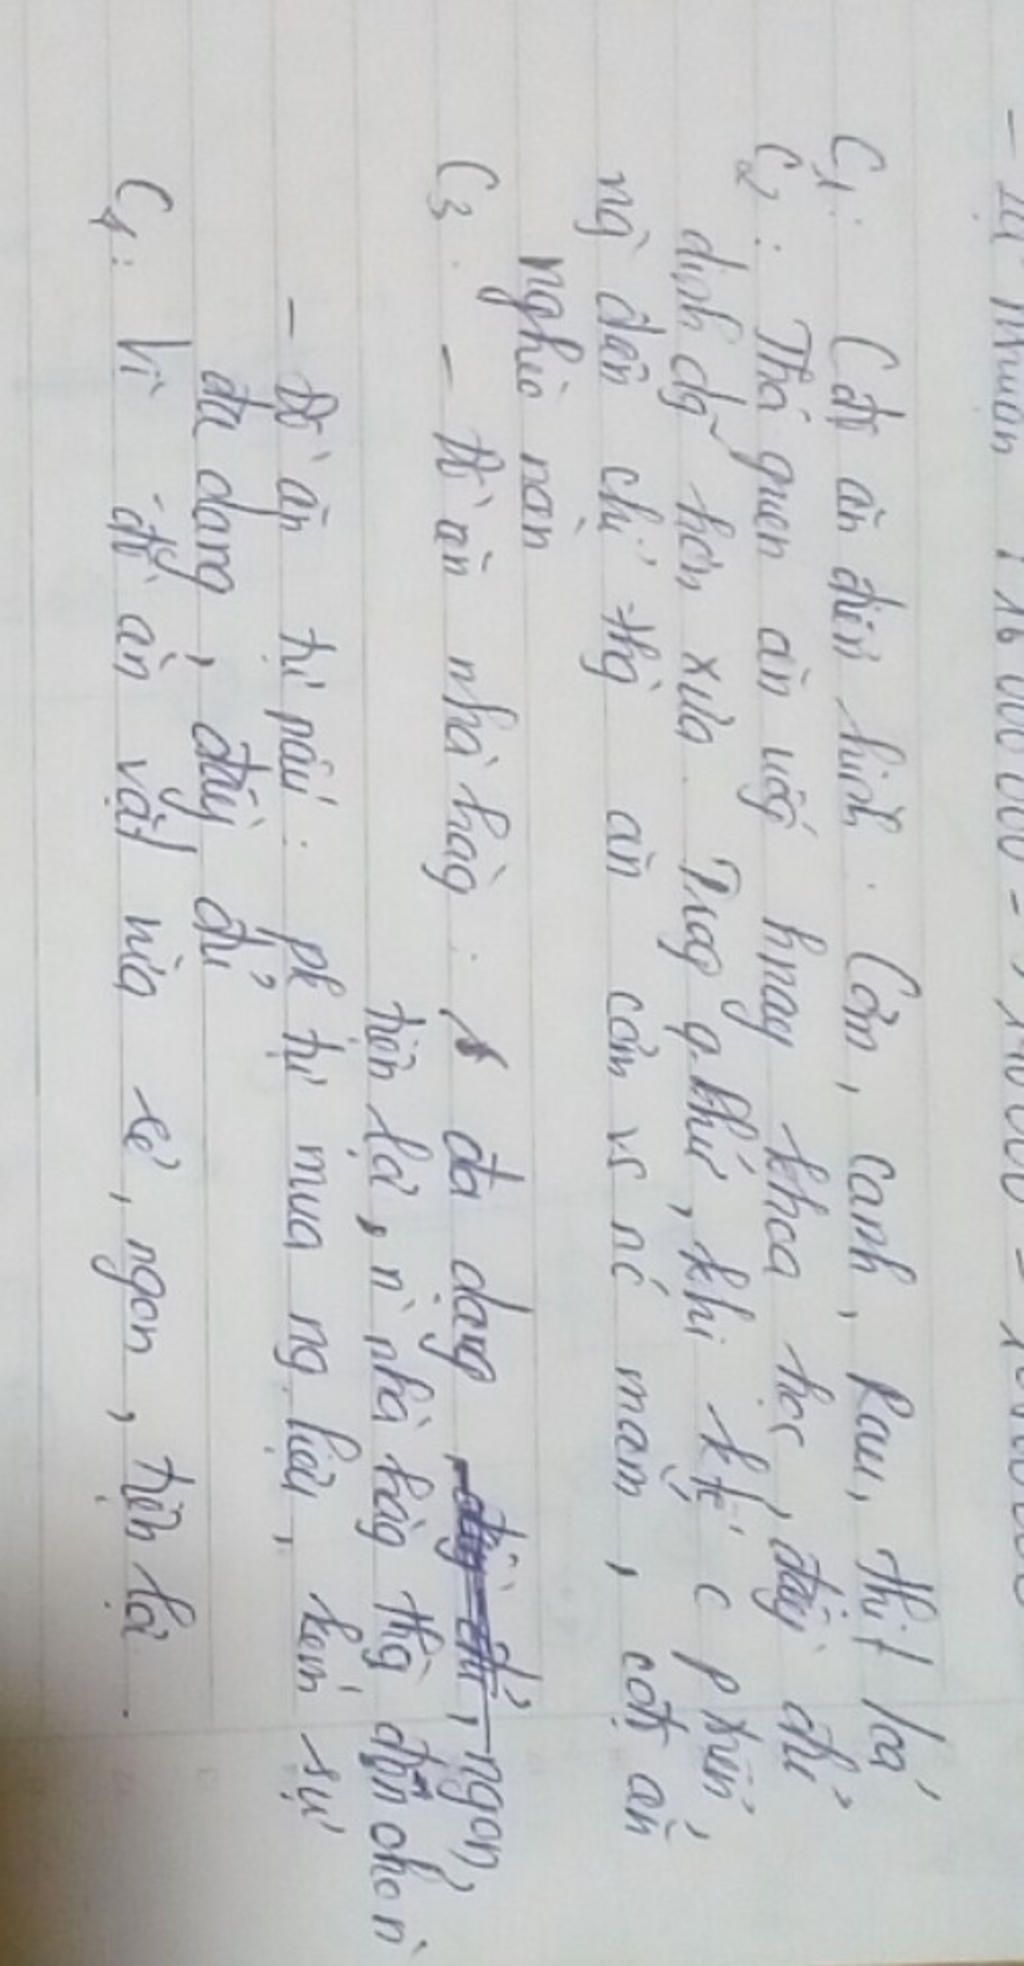 - Lợi nhuận 116 000 000 -
C1: Cđộ ăn điển hình: Cơm, canh, Rau, thịt / cá
C2: Thói quen ăn uốg hnay khoa học, đầy đủ
dinh dg hơn xưa. Trog q.khứ, khi k tế c p triển,
ng dân chỉ thg ăn cơm vs nc mắm, cđộ ăn
nghèo nàn
C3. - Đồ ăn nhà hàg: đa dạng đầy đủ, ngon,
tiện lợi, n nhà hàg thg đơn
- Đồ ăn tự nấu: pk tự mua ng. liệu, kém sự
đa dạng, đầy đủ
C4: Vì đồ ăn vặt vừa rẻ, ngon, tiện lợi.